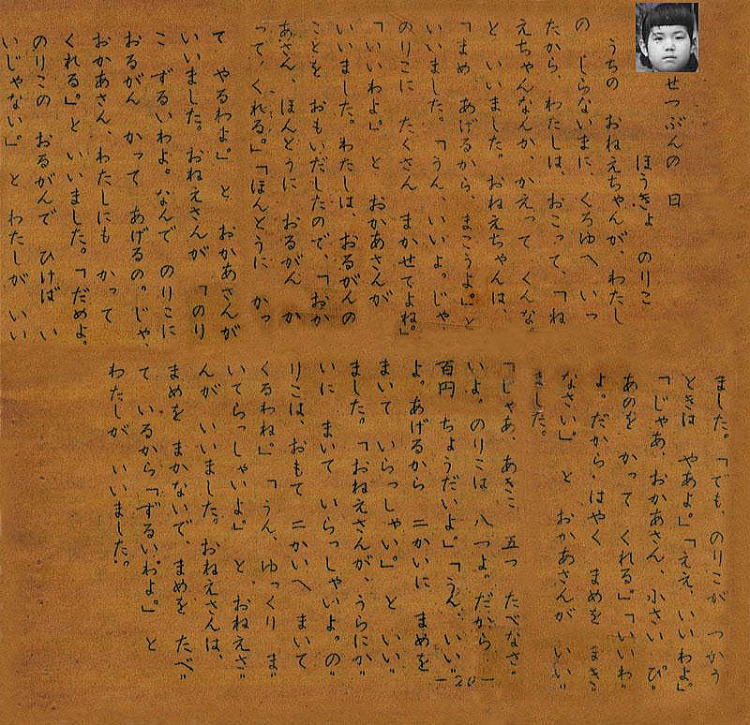 せつぶんの 日
ほうきょ のりこ
うちの おねえちゃんが、わたし
の しらないまに、くろゆへ いっ
たから、わたしは、おこって、「ね
えちゃんなんか、かえって くんな。
と いいました。おねえちゃんは、
「まめ あげるから、まこうよ。」と
いいました。「うん、いいよ。じゃ
のりこに たくさん まかせてよね。」
「いいわよ。」と おかあさんが
いいました。わたしは、おるがんの
ことを おもいだしたので、「おか
あさん、ほんとうに おるがん か
って、くれる。」「ほんとうに かっ
て やるわよ。」と おかあさんが
いいました。おねえさんが 「のり
こ ずるいわよ。なんで のりこに
おるがん かって あげるの。じゃ、
おかあさん、わたしにも かって
くれる。」と いいました。「だめよ。
のりこの おるがんで ひけば い
いじゃない。」と わたしが いい
ました。「でも、のりこが つかう
ときは やあよ。」「ええ、いいわよ。」
「じゃあ、おかあさん、小さい ぴ。
あのを かって くれる。」「いいわ。
よ。だから、はやく まめを まき
なさい。」と おかあさんが いい
ました。
「じゃあ、あきこ 五つ たべなさ。
いよ。のりこは 八つよ。だから
百円 ちょうだいよ。」「うん、いい
よ。あげるから 二かいに まめを
まいて いらっしゃい。」と いい
ました。「おねえさんが、うらにか
いに まいて いらっしゃいよ。の
りこは、おもて 二かいへ まいて
くるわね。」「うん、ゆっくり ま
いてらっしゃいよ。」と、おねえさ
んが いいました。おねえさんは、
まめを まかないで、まめを たべ
て いるから「ずるいわよ。」と
わたしが いいました。
-20-